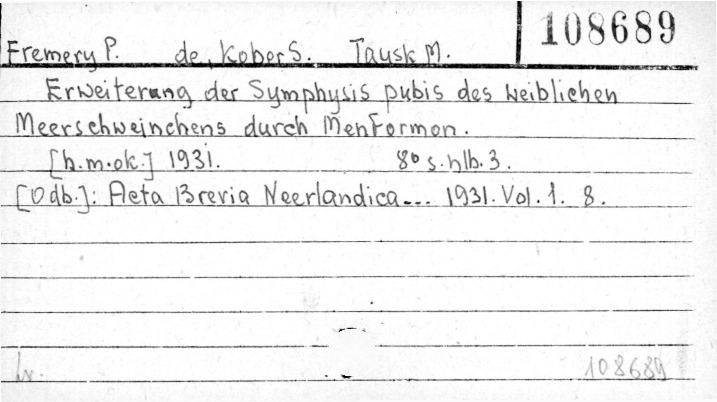 108689
Fremery P. de, Kober S. Tausk M.
Erweiterung der Symphysis pubis des weiblichen
Meerschweinchens durch Menformon.
[b.m.ok.] 1931. 8° s. nlb. 3.
[Odb.]: Acta Brevia Neerlandica... 1931. Vol. 1. 8.
108689